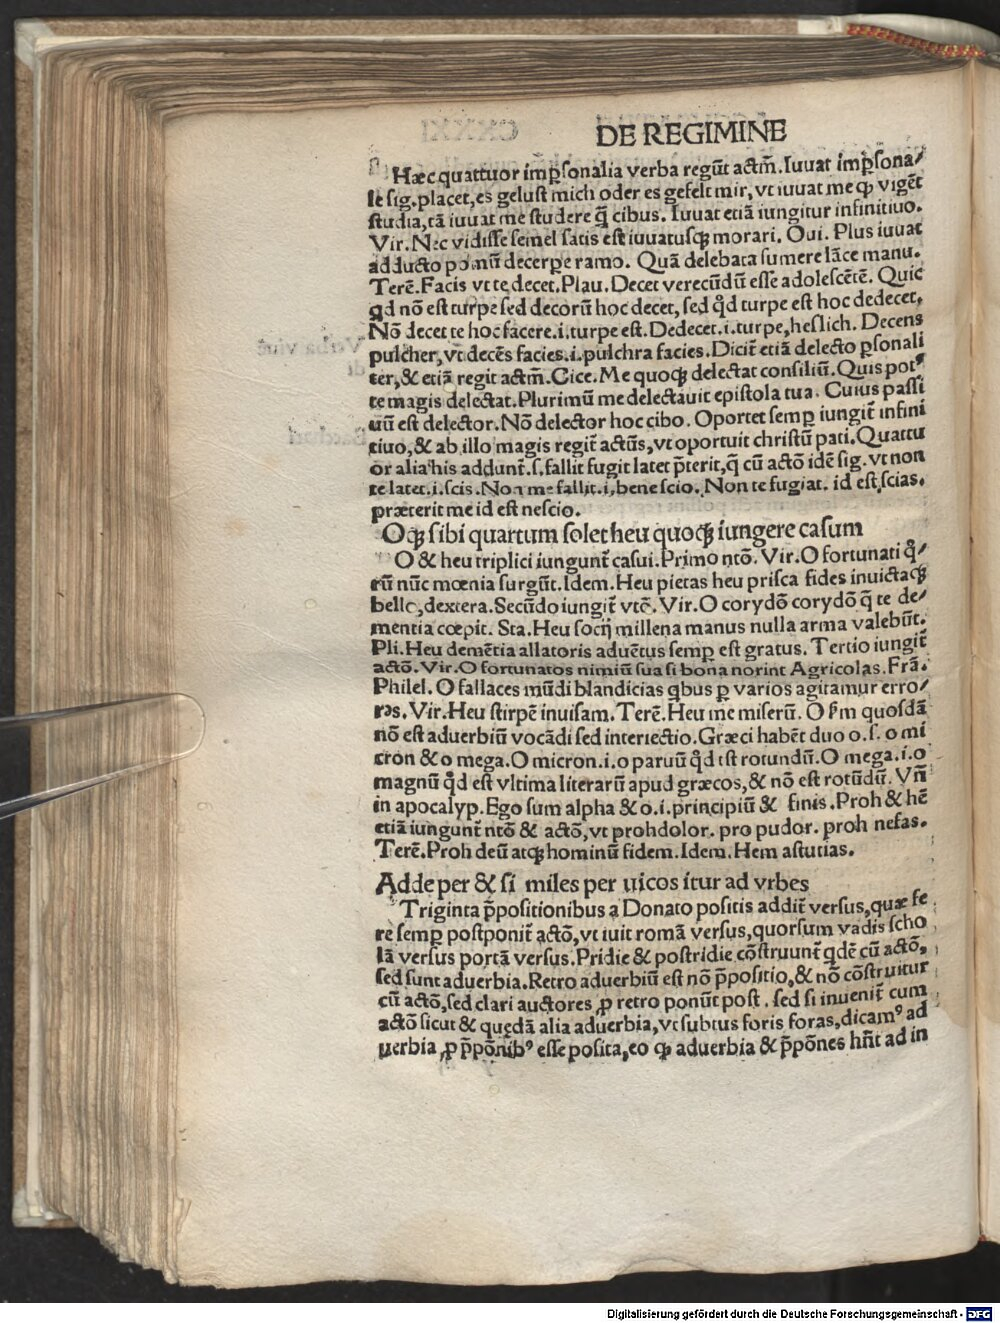 DE REGIMINE
Hæc quattuor imp̲sonalia verba regūt actm̄. Iuuat imp̲sona⸗
le sig. placet, es gelust mich oder es gefelt mir, vt iuuat me qꝫ vigēt
studia, tā iuuat me studere q̄ cibus. Iuuat etiā iungitur infinitiuo.
Vir. Nec vidisse semel satis est iuuatusqꝫ morari. Oui. Plus iuuat
adducto pomū decerpe ramo. Quā delebata sumere lāce manu.
Terē. Facis vt te decet. Plau. Decet verecūdū esse adolescētē. Quic
qd nō est turpe sed decorū hoc decet, sed q̊d turpe est hoc dedecet.
Nō decet te hoc facere .i. turpe est. Dedecet .i. turpe, heslich. Decens
pulcher, vt decēs facies .i. pulchra facies. Dicit̄ etiā delecto p̲sonali
ter, & etiā regit actm̄. Cice. Me quoqꝫ delectat consiliū. Quis potꝰ
te magis delectat. Plurimū me delectauit epistola tua. Cuius passi
uū est delector. Nō delector hoc cibo. Oportet semp̲ iungit̄ infini
tiuo, & ab illo magis regit̄ actūs, vt oportuit christū pati. Quattu
or alia his addunt̄ .s. fallit fugit latet p̄terit, q̄ cū actō idē sig. vt non
te latet .i. scis. Non me fallit .i. bene scio. Non te fugiat. id est scias.
præterit me id est nescio.
Oqꝫ sibi quartum solet heu quoqꝫ iungere casum
O & heu triplici iungunt̄ casui. Primo ntō. Vir. O fortunati q̊⸗
rū nūc mœnia surgūt. Idem. Heu pietas heu prisca fides inuictaqꝫ
bello, dextera. Secūdo iungit̄ vtō. Vir. O corydō corydō q̄ te de⸗
mentia cœpit. Sta. Heu socij millena manus nulla arma valebūt.
Pli. Heu demētia allatoris aduētus semp̲ est gratus. Tertio iungit̄
actō. Vir. O fortunatos nimiū sua si bona norint Agricolas. Frā.
Philel. O fallaces mūdi blandicias qbus p̲ varios agitamur erro⸗
res. Vir. Heu stirpē inuisam. Terē. Heu me miserū. O s̄m quosdā
nō est aduerbiū vocādi sed interiectio. Græci habēt duo o .s. o mi
cron & o mega. O micron .i. o paruū q̊d est rotundū. O mega .i. o
magnū q̊d est vltima literarū apud græcos, & nō est rotūdū. Vn̄
in apocalyp. Ego sum alpha & o .i. principiū & finis. Proh & hē
etiā iungunt̄ ntō & actō, vt prohdolor. pro pudor. proh nefas.
Terē. Proh deū atqꝫ hominū fidem. Idem. Hem astutias.
Adde per & si miles per uicos itur ad vrbes
Triginta p̄positionibus a Donato positis addit̄ versus, quæ fe
re semp̲ postponit̄ actō, vt iuit romā versus, quorsum vadis scho
lā versus portā versus. Pridie & postridie cōstruunt̄ qdē cū actō,
sed sunt aduerbia. Retro aduerbiū est nō p̄positio, & nō cōstruitur
cū actō, sed clari auctores ꝓ retro ponūt post. sed si inuenit̄ cum
actō sicut & quedā alia aduerbia, vt subtus foris foras, dicamꝰ ad
uerbia ꝓ p̄pōnibꝰ esse posita, eo qꝫ aduerbia & p̄pōnes hn̄t ad in
Digitalisierung gefördert durch die Deutsche Forschungsgemeinschaft - DFG